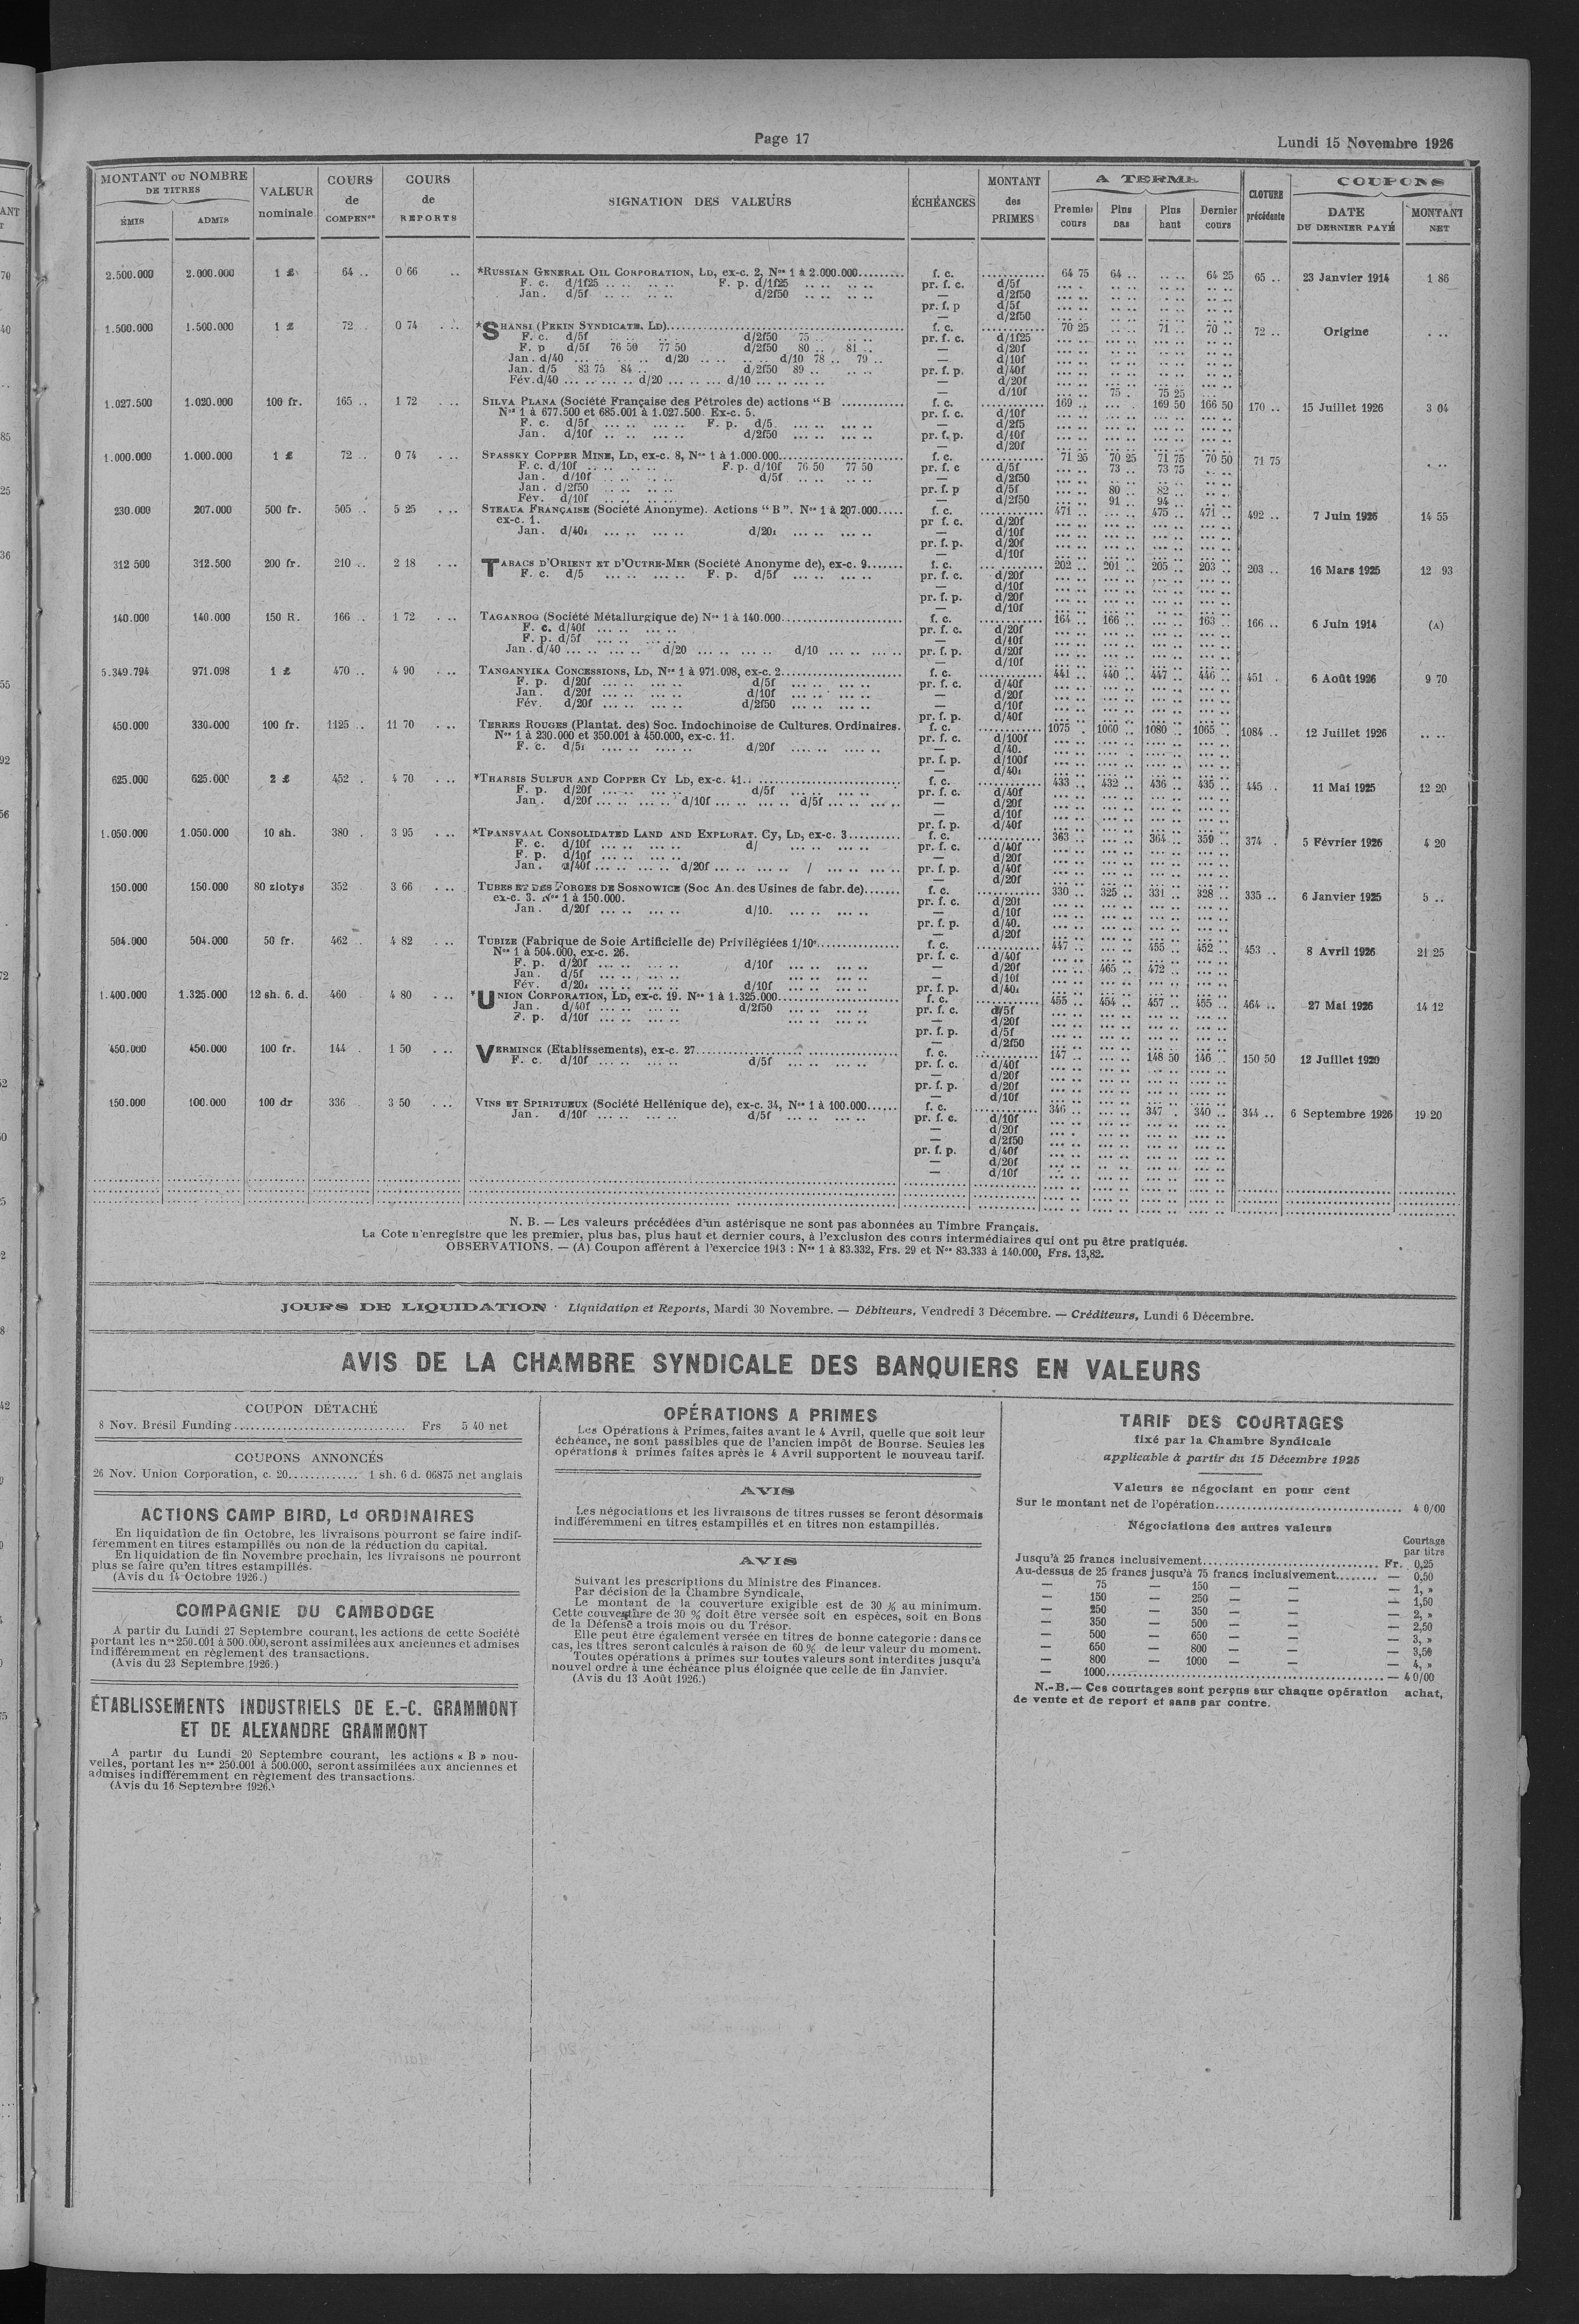 Page 17
Lundi 15 Novembre 1926
MONTANT OU NOMBRE DE TITRES
ÉMIS ADMIS
VALEUR nominale
COURS de COMPENon
COURS de REPORTS
SIGNATION DES VALEURS
ÉCHÉANCES
MONTANT des PRIMES
A TERME
Premier cours Plus bas Plus haut Dernier cours
CLOTURE précédente
COUPONS
DATE DU DERNIER PAYÉ
MONTANT NET
2.500.000 2.000.000 1 £ 64 .. 0 66 .. *RUSSIAN GENERAL OIL CORPORATION, LD, ex-c. 2, Nos 1 à 2.000.000 f. c. 64 75 64 .. .. .. 64 25 65 .. 23 Janvier 1914 1 86
F. c. d/1f25 .. .. .. .. F. p. d/1f25 .. .. .. .. pr. f. c. d/5f
Jan. d/5f .. .. .. .. d/2f50 .. .. .. .. — d/2f50
pr. f. p d/5f
— d/2f50
1.500.000 1.500.000 1 £ 72 .. 0 74 ... *SHANSI (PEKIN SYNDICATE, LD) f. c. 70 25 .. .. 71 .. 70 .. 72 .. Origine . ..
F. c. d/5f .. .. .. .. d/2f50 75 .. .. .. pr. f. c. d/1f25
F. p d/5f 76 50 77 50 d/2f50 80 .. 81 .. — d/20f
Jan. d/40 ... .. ... .. d/20 .. .. .. .. d/10 78 .. 79 .. — d/10f
Jan. d/5 83 75 84 .. d/2f50 89 .. .. .. pr. f. p. d/40f
Fév. d/40 ... .. ... .. d/20 ... .. ... .. d/10 ... .. ... .. — d/20f
— d/10f 75 . 75 25
1.027.500 1.020.000 100 fr. 165 .. 1 72 ... SILVA PLANA (Société Française des Pétroles de) actions "B f. c. 169 .. ... . 169 50 166 50 170 .. 15 Juillet 1926 3 04
Nos 1 à 677.500 et 685.001 à 1.027.500. Ex-c. 5. pr. f. c. d/10f
F. c. d/5f ... .. ... .. F. p. d/5. ... .. ... .. — d/2f5
Jan. d/10f .. .. .. .. d/2f50 ... .. ... .. pr. f. p. d/10f
— d/20f
1.000.000 1.000.000 1 £ 72 .. 0 74 ... SPASSKY COPPER MINE, LD, ex-c. 8, Nos 1 à 1.000.000 f. c. 71 25 70 25 71 75 70 50 71 75 . ..
F. c. d/10f .. .. .. .. F. p. d/10f 76 50 77 50 pr. f. c d/5f 73 .. 73 75
Jan. d/10f .. .. .. .. d/5f .. .. .. .. — d/2f50
Jan. d/2f50 .. .. .. .. pr. f. p d/5f 80 .. 82 ..
Fév. d/10f .. .. .. .. — d/2f50 91 .. 94 ..
230.000 207.000 500 fr. 505 .. 5 25 ... STEAUA FRANÇAISE (Société Anonyme). Actions "B". Nos 1 à 207.000 f. c. 471 .. ... .. 475 .. 471 .. 492 .. 7 Juin 1926 14 55
ex-c. 1. pr f. c. d/20f
Jan. d/40f ... .. ... .. d/20f ... .. ... .. — d/10f
pr. f. p. d/20f
— d/10f
312 500 312.500 200 fr. 210 .. 2 18 ... TABACS D'ORIENT ET D'OUTRE-MER (Société Anonyme de), ex-c. 9 f. c. 202 .. 201 .. 205 .. 203 .. 203 .. 16 Mars 1925 12 93
F. c. d/5 ... .. ... .. F. p. d/5f ... .. ... .. pr. f. c. d/20f
— d/10f
pr. f. p. d/20f
— d/10f
140.000 140.000 150 R. 166 .. 1 72 ... TAGANROG (Société Métallurgique de) Nos 1 à 140.000 f. c. 164 .. 166 .. ... .. 163 .. 166 .. 6 Juin 1914 (A)
F. c. d/40f ... .. ... .. pr. f. c. d/20f
F. p. d/5f ... .. ... .. — d/10f
Jan. d/40 ... .. ... .. d/20 ... .. ... .. d/10 ... .. ... .. pr. f. p. d/20f
— d/10f
5.349.794 971.098 1 £ 470 .. 4 90 ... TANGANYIKA CONCESSIONS, LD, Nos 1 à 971.098, ex-c. 2 f. c. 441 .. 440 .. 447 .. 446 .. 451 . 6 Août 1926 9 70
F. p. d/20f ... .. ... .. d/5f ... .. ... .. pr. f. c. d/40f
Jan. d/20f ... .. ... .. d/10f ... .. ... .. — d/20f
Fév. d/20f ... .. ... .. d/2f50 ... .. ... .. — d/10f
pr. f. p. d/40f
450.000 330.000 100 fr. 1125 .. 11 70 ... TERRES ROUGES (Plantat. des) Soc. Indochinoise de Cultures. Ordinaires. f. c. 1075 . 1060 .. 1080 .. 1065 .. 1084 .. 12 Juillet 1926 .. ..
Nos 1 à 230.000 et 350.001 à 450.000, ex-c. 11. pr. f. c. d/100f
F. c. d/5f .... .. .... .. d/20f .... .. .... .. — d/40.
pr. f. p. d/100f
— d/40f
625.000 625.000 2 £ 452 . 4 70 ... *THARSIS SULFUR AND COPPER CY LD, ex-c. 41 f. c. 433 .. 432 .. 436 .. 435 .. 445 . 11 Mai 1925 12 20
F. p. d/20f ... .. ... .. d/5f ... .. ... .. pr. f. c. d/40f
Jan. d/20f ... .. ... .. d/10f ... .. ... .. d/5f ... .. ... .. — d/20f
— d/10f
pr. f. p. d/40f
1.050.000 1.050.000 10 sh. 380 . 3 95 ... *TRANSVAAL CONSOLIDATED LAND AND EXPLORAT. Cy, LD, ex-c. 3 f. c. 363 .. ... .. 364 .. 359 .. 374 . 5 Février 1926 4 20
F. c. d/10f ... .. ... .. d/ ... .. ... .. pr. f. c. d/40f
F. p. d/10f ... .. ... .. — d/20f
Jan. d/40f ... .. ... .. d/20f ... .. ... .. / ... .. ... .. pr. f. p. d/40f
— d/20f
150.000 150.000 80 zlotys 352 3 66 ... TUBES ET DES FORGES DE SOSNOWICE (Soc An. des Usines de fabr. de) f. c. 330 .. 325 .. 331 .. 328 .. 335 .. 6 Janvier 1925 5 ..
ex-c. 3. Nos 1 à 150.000. pr. f. c. d/20f
Jan. d/20f ... .. ... .. d/10. ... .. ... .. — d/10f
pr. f. p. d/40.
— d/20f
504.000 504.000 50 fr. 462 . 4 82 ... TUBIZE (Fabrique de Soie Artificielle de) Privilégiées 1/10e f. c. 447 .. ... .. 455 .. 452 .. 453 .. 8 Avril 1926 21 25
Nos 1 à 504.000, ex-c. 26. pr. f. c. d/40f
F. p. d/20f ... .. ... .. d/10f ... .. ... .. — d/20f 465 .. 472 ..
Jan. d/5f ... .. ... .. — d/10f
Fév. d/20f ... .. ... .. d/10f ... .. ... .. pr. f. p. d/40f
1.400.000 1.325.000 12 sh. 6. d. 460 4 80 ... *UNION CORPORATION, LD, ex-c. 19. Nos 1 à 1.325.000 f. c. 455 .. 454 .. 457 .. 455 .. 464 .. 27 Mai 1926 14 12
Jan. d/40f ... .. ... .. d/2f50 ... .. ... .. pr. f. c. d/5f
F. p. d/10f ... .. ... .. — d/20f
pr. f. p. d/5f
— d/2f50
450.000 450.000 100 fr. 144 . 1 50 ... VERMINCK (Etablissements), ex-c. 27 f. c. 147 .. ... .. 148 50 146 .. 150 50 12 Juillet 1920
F. c. d/10f ... .. ... .. d/5f ... .. ... .. pr. f. c. d/40f
— d/20f
pr. f. p. d/20f
— d/10f
150.000 100.000 100 dr 336 3 50 ... VINS ET SPIRITUEUX (Société Hellénique de), ex-c. 34, Nos 1 à 100.000 f. c. 346 .. ... .. 347 . 340 .. 344 .. 6 Septembre 1926 19 20
Jan. d/10f ... .. ... .. d/5f ... .. ... .. pr. f. c. d/10f
— d/20f
— d/2f50
pr. f. p. d/40f
— d/20f
— d/10f
N. B. — Les valeurs précédées d'un astérisque ne sont pas abonnées au Timbre Français.
La Cote n'enregistre que les premier, plus bas, plus haut et dernier cours, à l'exclusion des cours intermédiaires qui ont pu être pratiqués.
OBSERVATIONS. — (A) Coupon afférent à l'exercice 1913 : Nos 1 à 83.332, Frs. 29 et Nos 83.333 à 140.000, Frs. 13,82.
JOURS DE LIQUIDATION · Liquidation et Reports, Mardi 30 Novembre. — Débiteurs, Vendredi 3 Décembre. — Créditeurs, Lundi 6 Décembre.
AVIS DE LA CHAMBRE SYNDICALE DES BANQUIERS EN VALEURS
COUPON DÉTACHÉ
8 Nov. Brésil Funding.......... Frs 5 40 net
COUPONS ANNONCÉS
26 Nov. Union Corporation, c. 20............. 1 sh. 6 d. 06875 net anglais
ACTIONS CAMP BIRD, Ld ORDINAIRES
En liquidation de fin Octobre, les livraisons pourront se faire indif-
féremment en titres estampillés ou non de la réduction du capital.
En liquidation de fin Novembre prochain, les livraisons ne pourront
plus se faire qu'en titres estampillés.
(Avis du 14 Octobre 1926.)
COMPAGNIE DU CAMBODGE
A partir du Lundi 27 Septembre courant, les actions de cette Société
portant les nos 250.001 à 500.000, seront assimilées aux anciennes et admises
indifféremment en règlement des transactions.
(Avis du 23 Septembre 1926.)
ÉTABLISSEMENTS INDUSTRIELS DE E.-C. GRAMMONT
ET DE ALEXANDRE GRAMMONT
A partir du Lundi 20 Septembre courant, les actions « B » nou-
velles, portant les nos 250.001 à 500.000, seront assimilées aux anciennes et
admises indifféremment en règlement des transactions.
(Avis du 16 Septembre 1926.)
OPÉRATIONS A PRIMES
Les Opérations à Primes, faites avant le 4 Avril, quelle que soit leur
échéance, ne sont passibles que de l'ancien impôt de Bourse. Seules les
opérations à primes faites après le 4 Avril supportent le nouveau tarif.
AVIS
Les négociations et les livraisons de titres russes se feront désormais
indifféremment en titres estampillés et en titres non estampillés.
AVIS
Suivant les prescriptions du Ministre des Finances.
Par décision de la Chambre Syndicale,
Le montant de la couverture exigible est de 30 % au minimum.
Cette couverture de 30 % doit être versée soit en espèces, soit en Bons
de la Défense a trois mois ou du Trésor.
Elle peut être également versée en titres de bonne categorie : dans ce
cas, les titres seront calculés à raison de 60 % de leur valeur du moment.
Toutes opérations à primes sur toutes valeurs sont interdites jusqu'à
nouvel ordre à une échéance plus éloignée que celle de fin Janvier.
(Avis du 13 Août 1926.)
TARIF DES COURTAGES
fixé par la Chambre Syndicale
applicable à partir du 15 Décembre 1925
Valeurs se négociant en pour cent
Sur le montant net de l'opération.......... 4 0/00
Négociations des autres valeurs
Courtage
par titre
Jusqu'à 25 francs inclusivement.......... Fr. 0,25
Au-dessus de 25 francs jusqu'à 75 francs inclusivement........ — 0,50
— 75 — 150 — — — 1, »
— 150 — 250 — — — 1,50
— 250 — 350 — — — 2, »
— 350 — 500 — — — 2,50
— 500 — 650 — — — 3, »
— 650 — 800 — — — 3,50
— 800 — 1000 — — — 4, »
— 1000.......... — 4 0/00
N.-B.— Ces courtages sont perçus sur chaque opération achat,
de vente et de report et sans par contre.